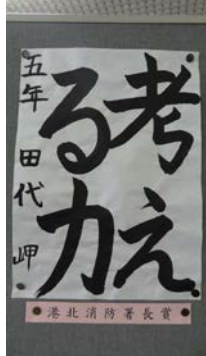 考え
る力
五年 田代 岬
港北消防署長賞